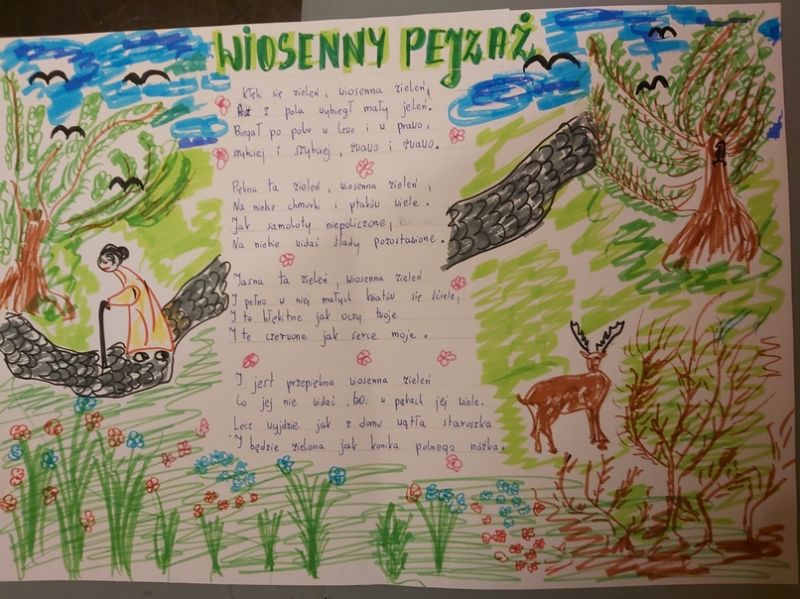 WIOSENNY PEJZAŻ
Kłębi się zieleń, wiosenna zieleń,
Aż z pola wybiegł mały jeleń.
Biegał po polu w lewo i w prawo,
szybciej i szybciej, żwawo i żwawo.
Piękna ta zieleń, wiosenna zieleń,
Na niebie chmurki i ptaków wiele.
Jak samoloty niepoliczone,
Na niebie widać ślady pozostawione.
Jasna ta zieleń, wiosenna zieleń
I pełno w niej małych kwiatów się ściele,
I to błękitne jak oczy twoje
I te czerwone jak serce moje.
I jest przepiękna wiosenna zieleń
Co jej nie widać, bo w pąkach jej wiele.
Lecz wyjdzie jak z domu wątła staruszka
I będzie zielona jak konika polnego nóżka.